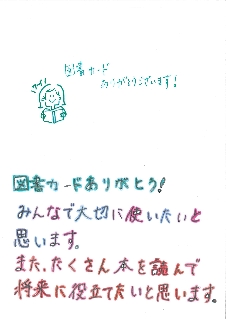 図書カード
ありがとうございます!
図書カードありがとう!
みんなで大切に使いたいと
思います。
また、たくさん本を読んで
将来に役立てたいと思います。